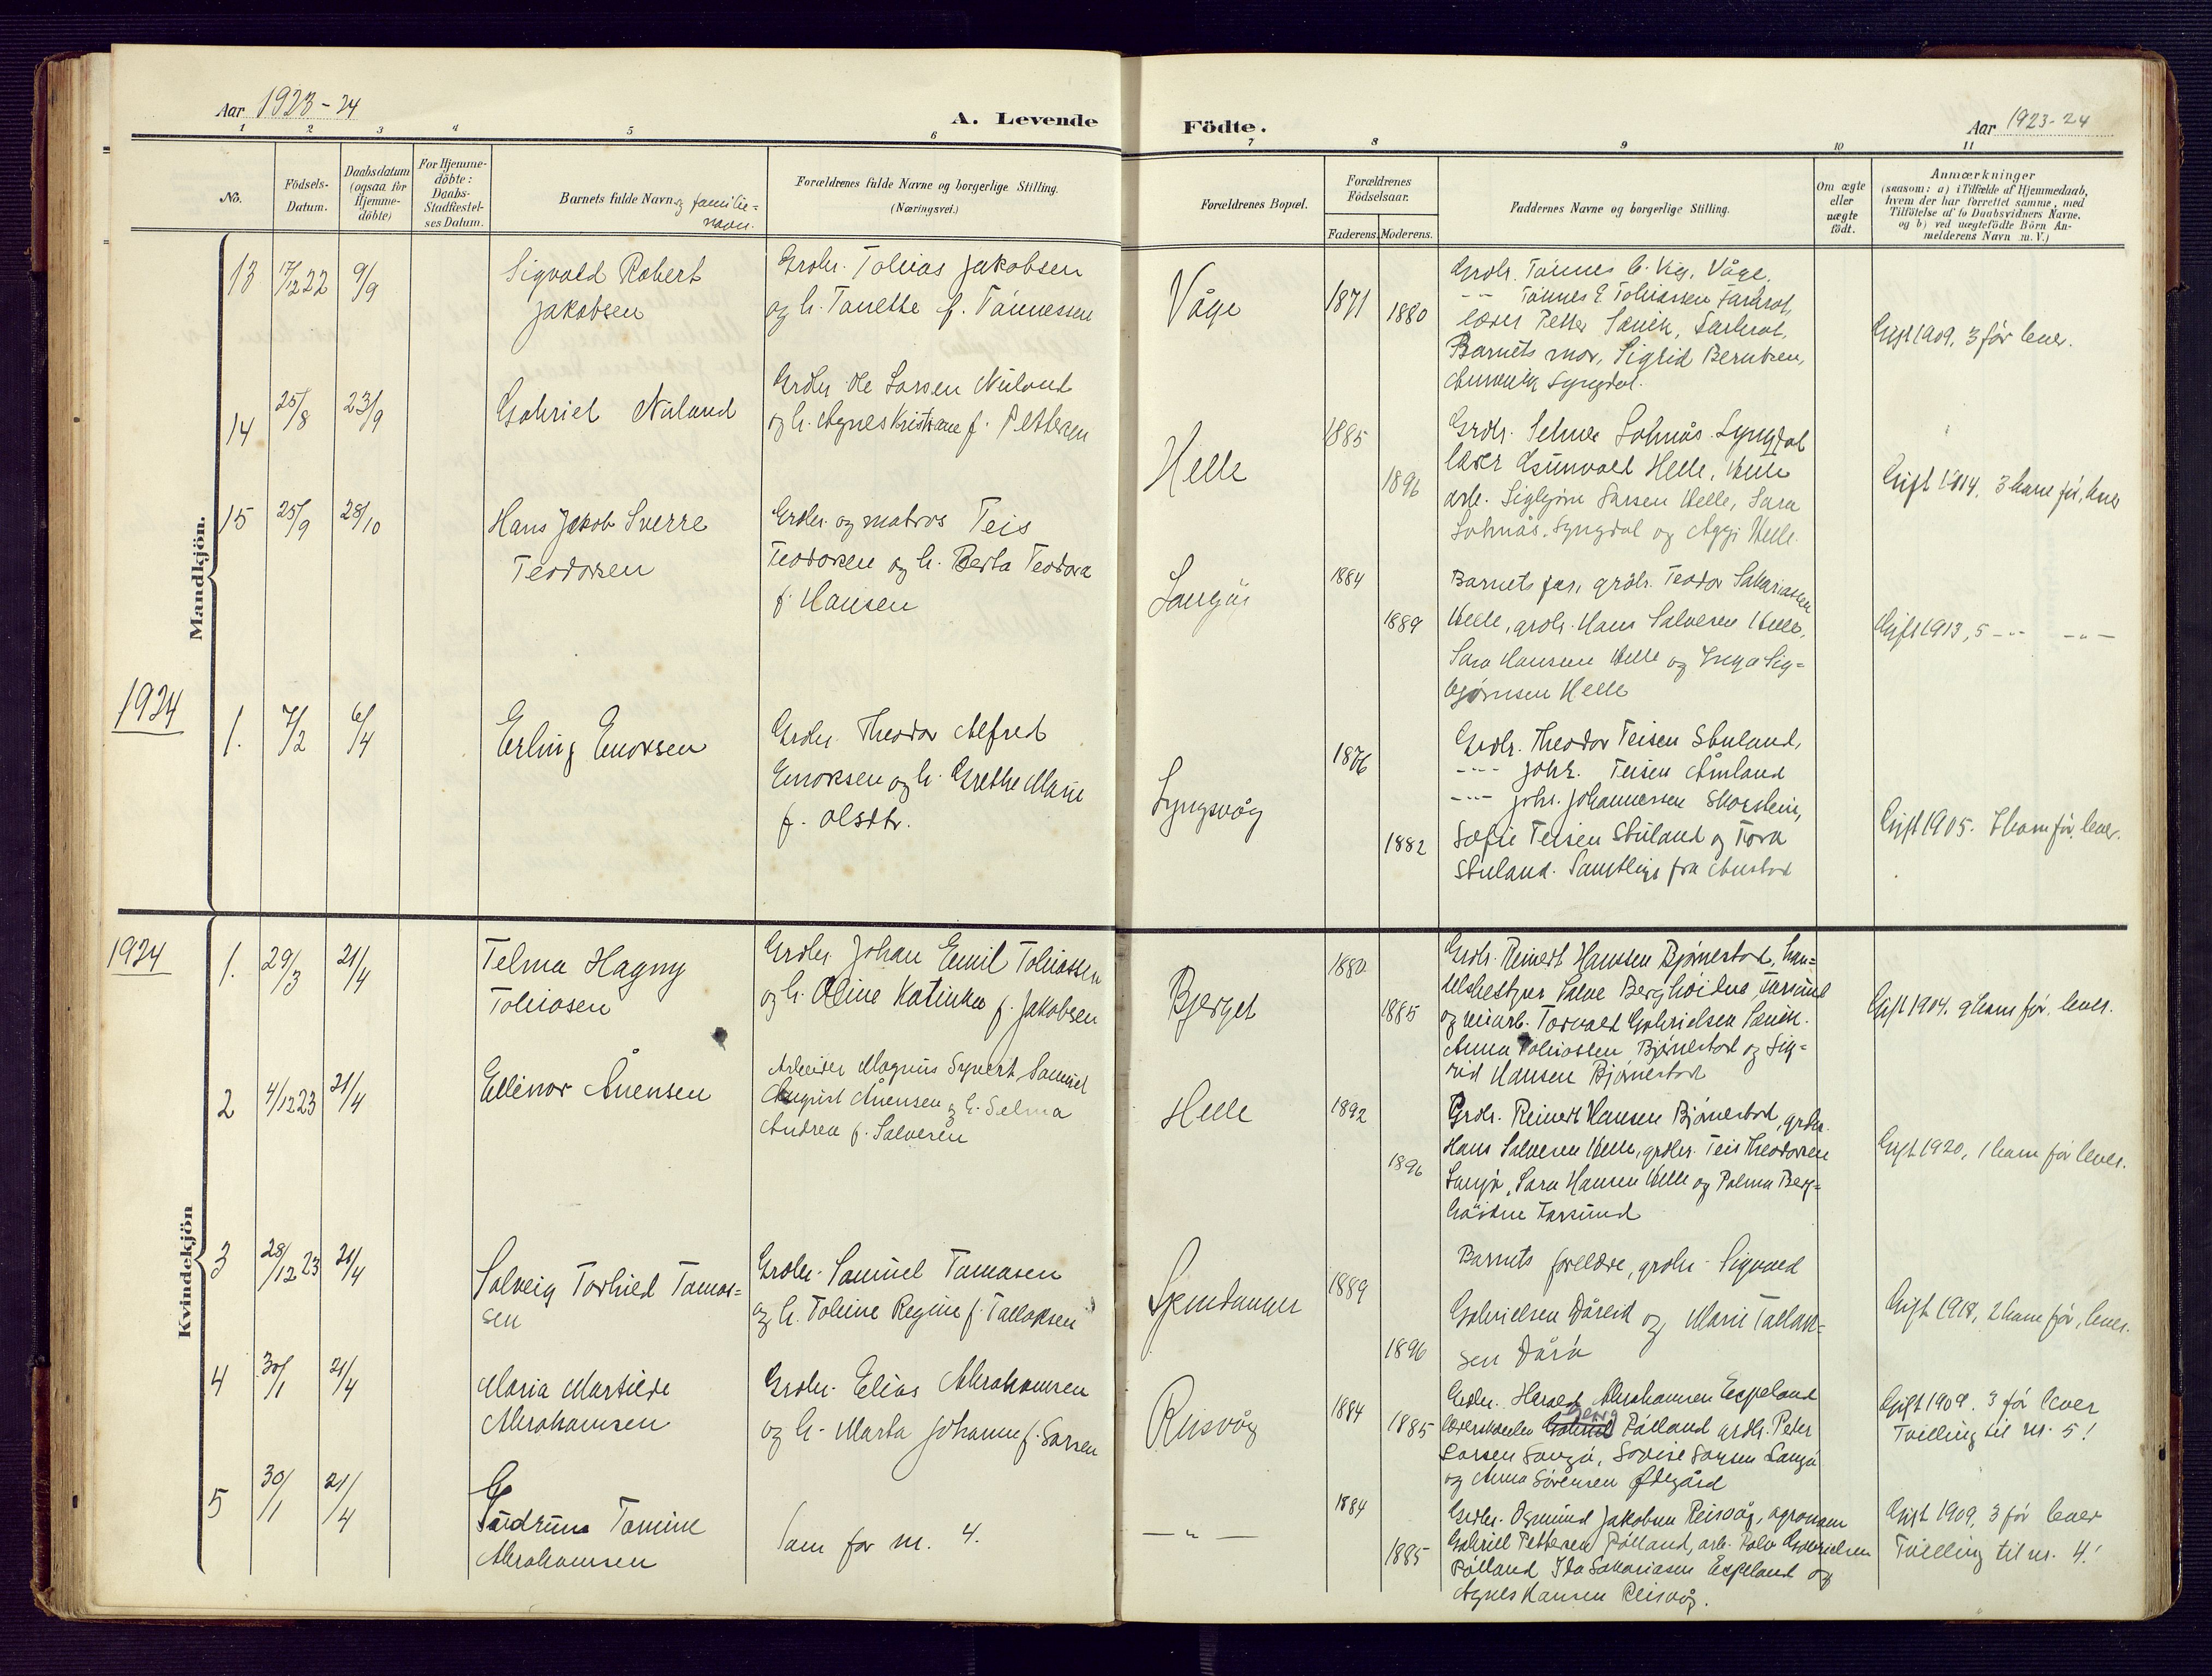 Aar 1923-24
A. Levende
Födte.
Aar 1923-24
1 2 3 4 5 6 7 8 9 10 11
No.
Födsels-
Datum.
Daabsdatum
(ogsaa for
Hjemme-
döbte)
For Hjemme-
döbte:
Daabs-
Stadfæstel-
ses Datum.
Barnets fulde Navn og familie=
navn.
Forældrenes fulde Navne og borgerlige Stilling.
(Næringsvei.)
Forældrenes Bopæl.
Forældrenes
Födselsaar.
Faderens. Moderens.
Faddernes Navne og borgerlige Stilling.
Om ægte
eller
uægte
födt.
Anmærkninger
(saasom: a) i Tilfælde af Hjemmedaab,
hvem der har forrettet samme, med
Tilföielse af to Daabsvidners Navne.
og b) ved uægtefödte Börn An-
melderens Navn m. V.)
Mandkjön.
13 17/12 22 9/9
Sigvald Robert
Jakobsen
Grdbr. Tobias Jakobsen
og h. Tanette f. Tønnessen
Våge
1871 1880
Grdbr. Tønnes
Tønnes E. Tobiassen
lærer Petter
Barnets mor, Sigrid Berntsen,
Lyngdal.
Gift 1909, 3 før lever.
14 25/8 23/9
Gabriel Nuland
Grdbr Ole Larsen Nuland
og h. Agnes Kristiane f. Pettersen
Helle
1885 1896
Grdbr. Lyngdal
lærer Helle, Helle
arb. Sigbjørn Larsen Helle, Sara
Lyngdal og Helle.
Gift 1914, 3 barn før, lever
15 25/9 28/10
Hans Jakob Sverre
Teodorsen
Grdbr. og matros Teis
Teodorsen og h. Berta Teodora
f. Hansen
Langøy
1884 1889
Barnets far, grdbr. Teodor Sakariassen
Helle, grdbr. Hans Salvesen Helle,
Sara Hansen Helle og Inga Sig=
bjørnsen Helle
Gift 1913, 5 -"- -"-
1924
1. 7/2 6/4
Erling Enoksen
Grdbr. Theodor Alfred
Enoksen og h. Grethe Marie
f. Olsdtr.
Lyngsvåg
1876 1882
Grdbr. Theodor Teisen Stuland,
-"- Johs. Teisen Åmland
-"- Johs. Johannessen Skorstein,
Sofie Teisen Stuland og Tora
Stuland. Samtlige fra Austad
Gift 1905. 7 barn før, lever.
Kvindekjön
1924
1. 29/3 21/4
Telma Hagny
Tobiasen
Grdbr Johan Emil Tobiassen
og h. Oline Katinka f. Jakobsen
Bjerget
1880 1885
Grdbr. Reinert Hanssen Bjørnestad, han=
delsbestyrer Salve Berghøidne Farsund
og Torvald Gabrielsen
Anna Tobiassen Bjørnestad og Sig=
rid Hansen Bjørnestad
Gift 1904. 9 barn før, lever.
2 4/12 23 21/4
Ellinor Ånensen
Arbeider Magnus Syvert Samuel
August Ånensen og h. Selma
Andrea f. Salvesen
Helle
1892 1896
Grdbr. Reinert Hansen Bjørnestad, grdbr.
Hans Salvesen Helle, grdbr. Teis Theodorsen
Langø, Sara Hansen Helle og Palma Berg=
høidne Farsund
Gift 1920, 1 barn før lever.
3 28/12 23 21/4
Solveig Torhild Tomas=
sen
Grdbr. Samuel Tomasen
og h. Tobine Regine f. Tallaksen
Spindanger
1889 1896
Barnets foreldre, grdbr. Sigvald
Gabrielsen og Marie Tallak=
sen
Gift 1918, 2 barn før, lever.
4 30/1 21/4
Maria Matilde
Abrahamsen
Grdbr. Elias Abrahamsen
og h. Marta Johanne f. Larsen
Risvåg
1884 1885
Grdbr. Harald Abrahamsen Espeland
Georg Gabriel Rølland grdbr. Peter
Larsen Langø, Lovise Larsen Langø
og Anna Sørensen Ødegård
Gift 1909. 3 før lever
Tvilling til nr. 5!
5 30/1 21/4
Gudrun Tomine
Abrahamsen
Som for nr. 4.
-"-
1884 1885
Grdbr. Osmund Jakobsen Reisvåg, agronom
Gabriel Pettersen Rølland, arb. Gabrielsen
Rølland Ida Sakariasen Espeland og
Agnes Hansen Reisvåg.
Gift 1909, 3 før lever
Tvilling til nr. 4!